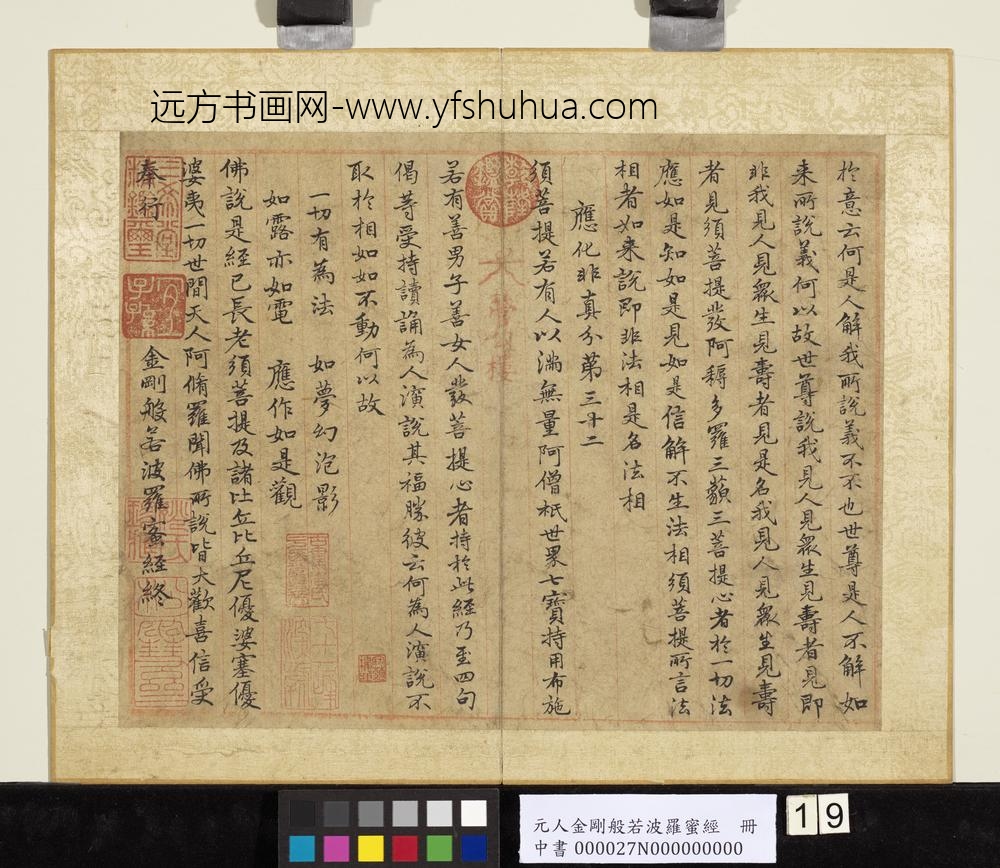 远方书画网-www.yfshuhua.com
於意云何是人解我所說義不不也世尊是人不解如
来所說義何以故世尊說我見人見眾生見壽者見即
非我見人見眾生見壽者見是名我見人見眾生見壽
者見須菩提發阿耨多羅三藐三菩提心者於一切法
應如是知如是見如是信解不生法相須菩提所言法
相者如来說即非法相是名法相
應化非真分第三十二
須菩提若有人以滿無量阿僧祇世界七寶持用布施
若有善男子善女人發菩提心者持於此經乃至四句
偈等受持讀誦為人演說其福勝彼云何為人演說不
取於相如如不動何以故
一切有為法 如夢幻泡影
如露亦如電 應作如是觀
佛說是經已長老須菩提及諸比丘比丘尼優婆塞優
婆夷一切世間天人阿脩羅聞佛所說皆大歡喜信受
奉行 金剛般若波羅蜜經終
元人金剛般若波羅蜜經 冊
中書 000027N000000000
19